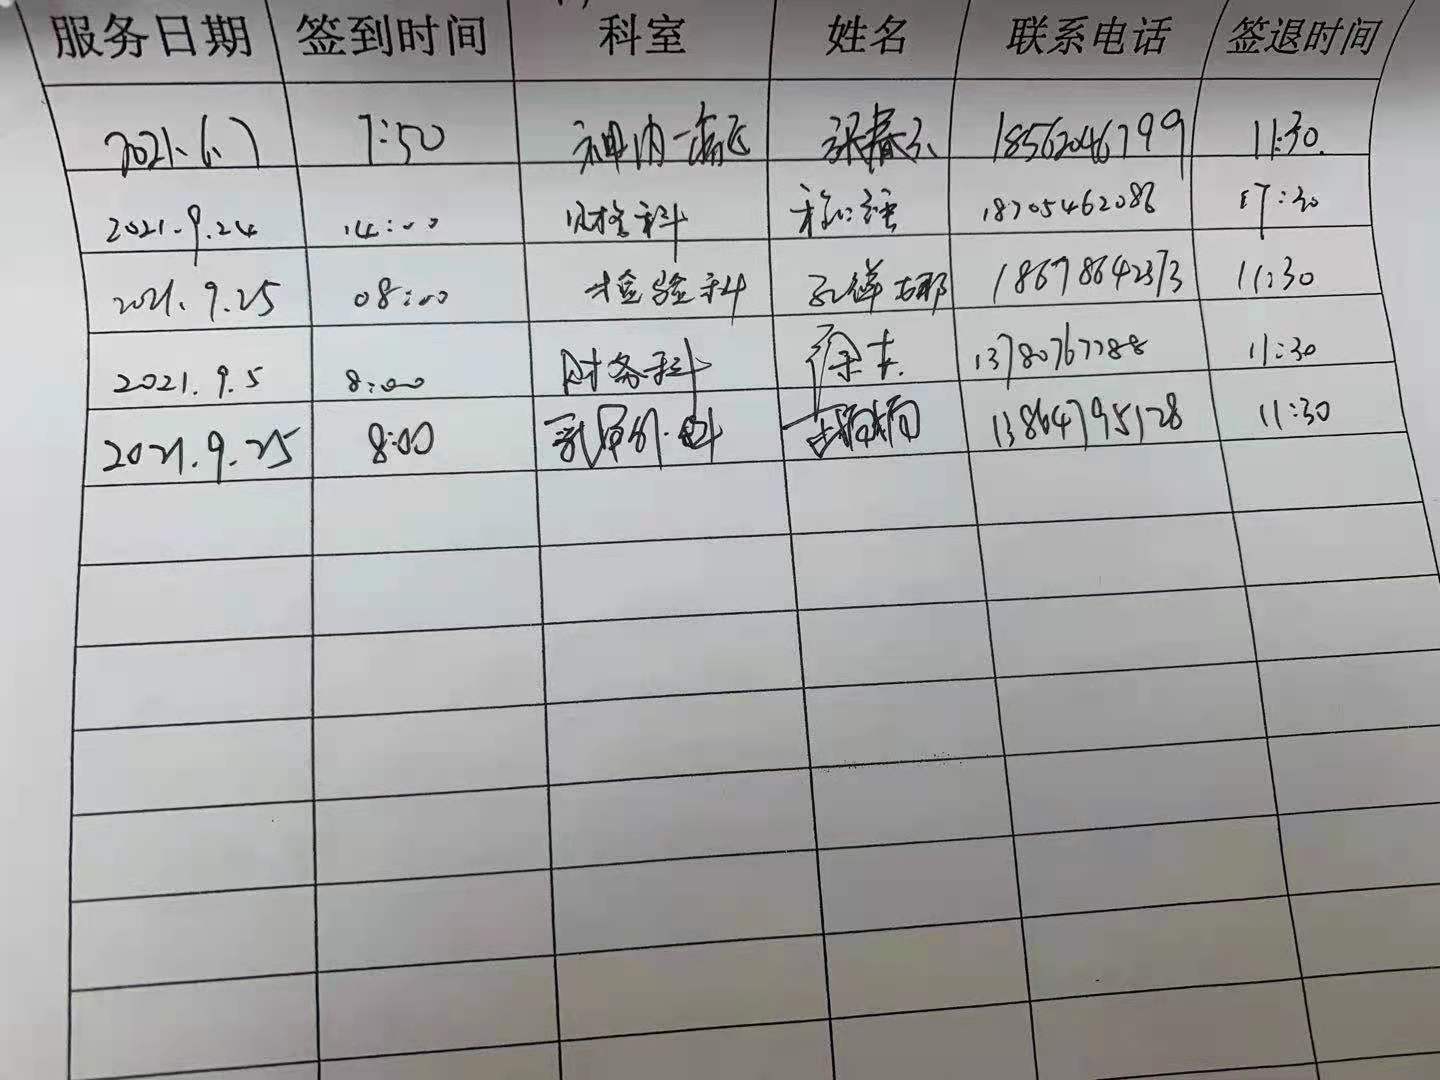 服务日期 签到时间 科室 姓名 联系电话 签退时间
2021.6.7 7:50 神内一 张春 18562046799 11:30.
2021.9.24 14:00 科 18705462086 17:30
2021.9.25 08:00 检验科 18678642373 11:30
2021.9.5 8:00 财务科 徐 13780767288 11:30
2021.9.25 8:00 乳 外科 13864795128 11:30